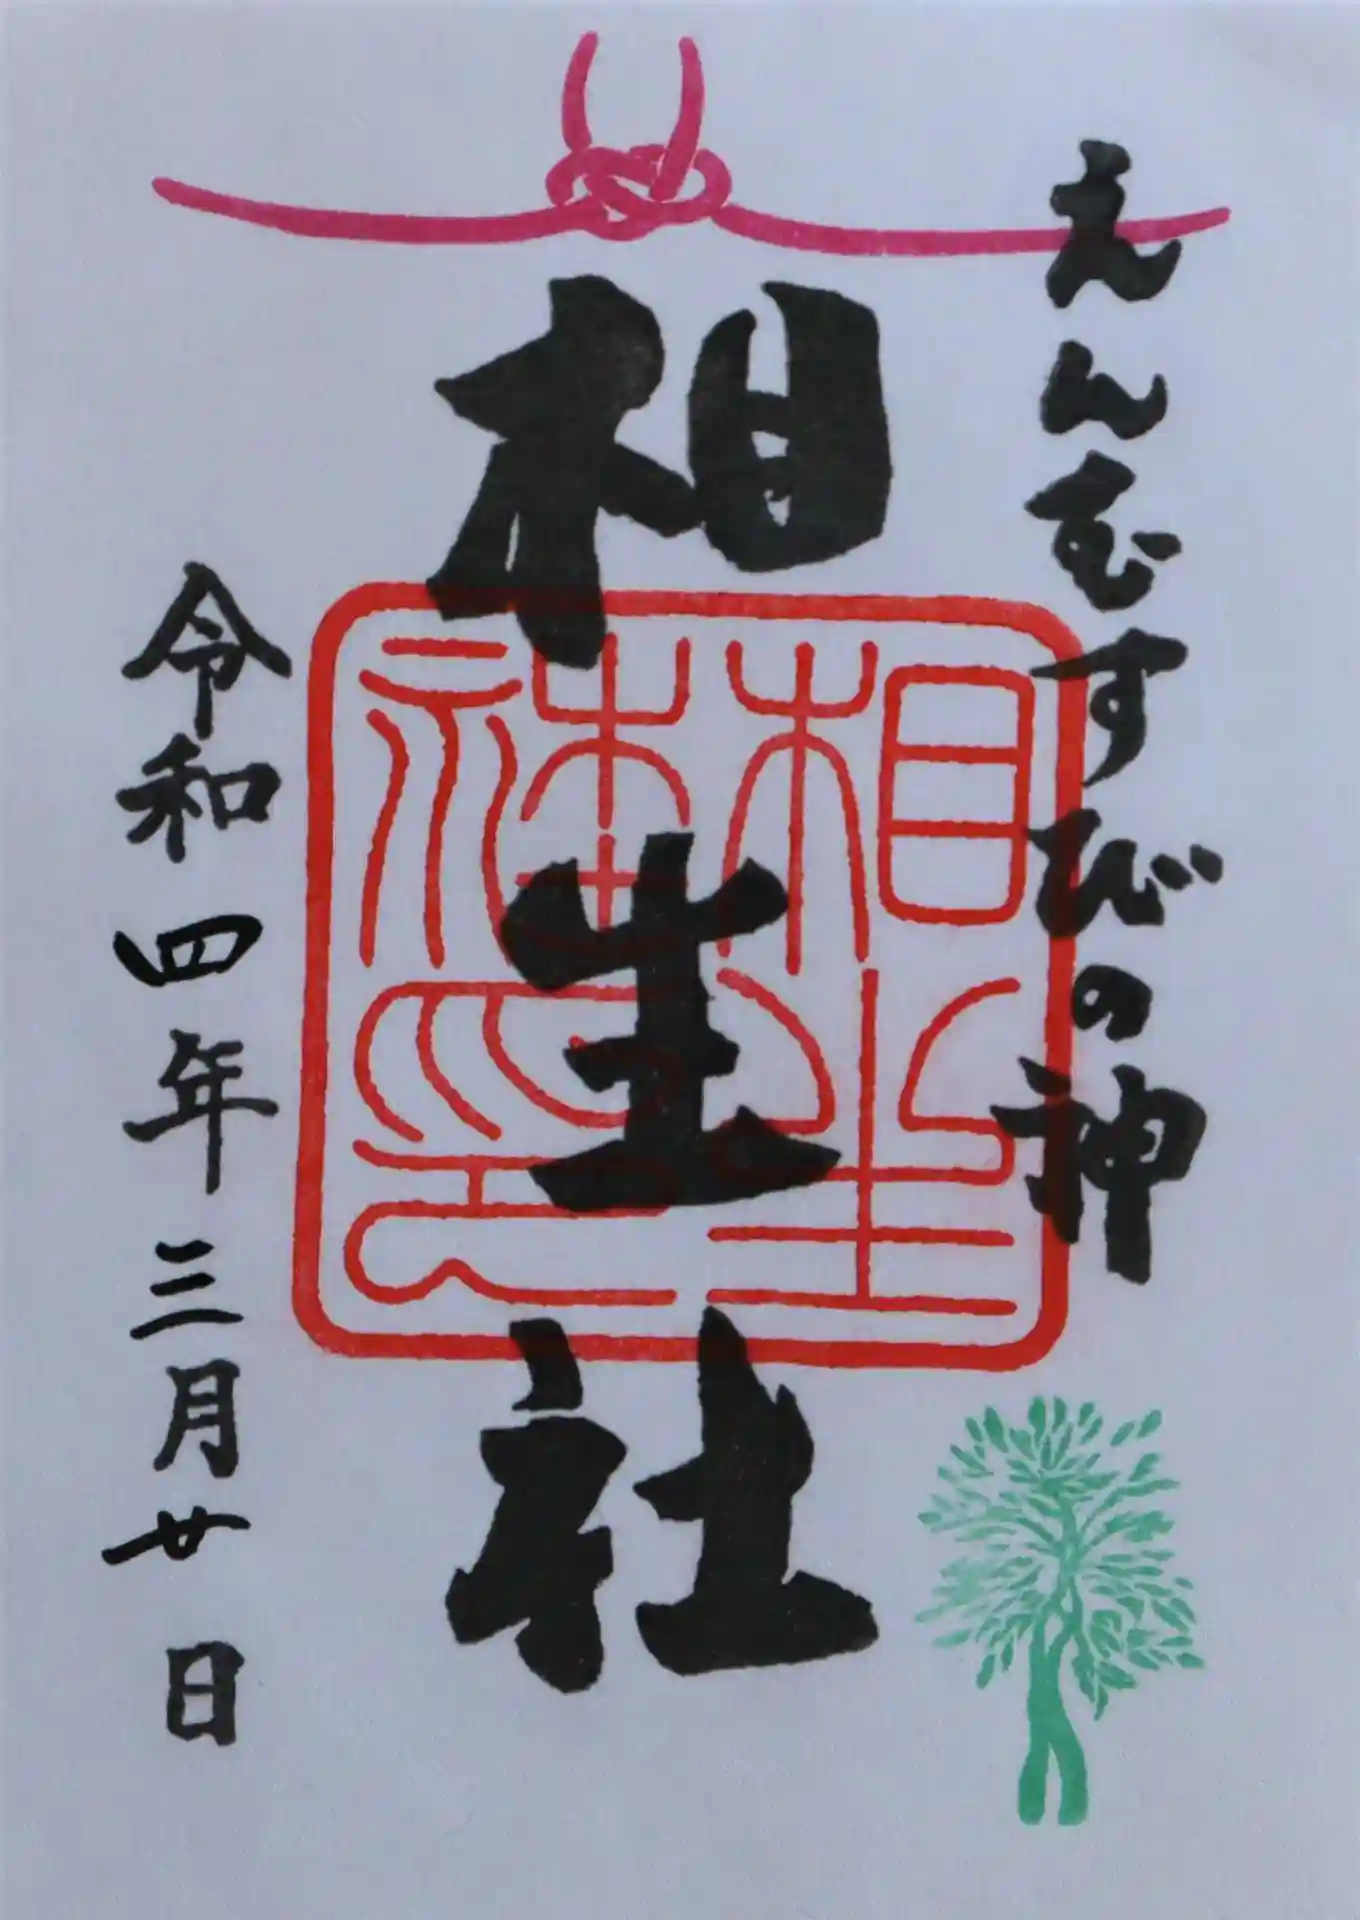 えんむすびの神
相生社
相生
神社印
令和四年三月廿日